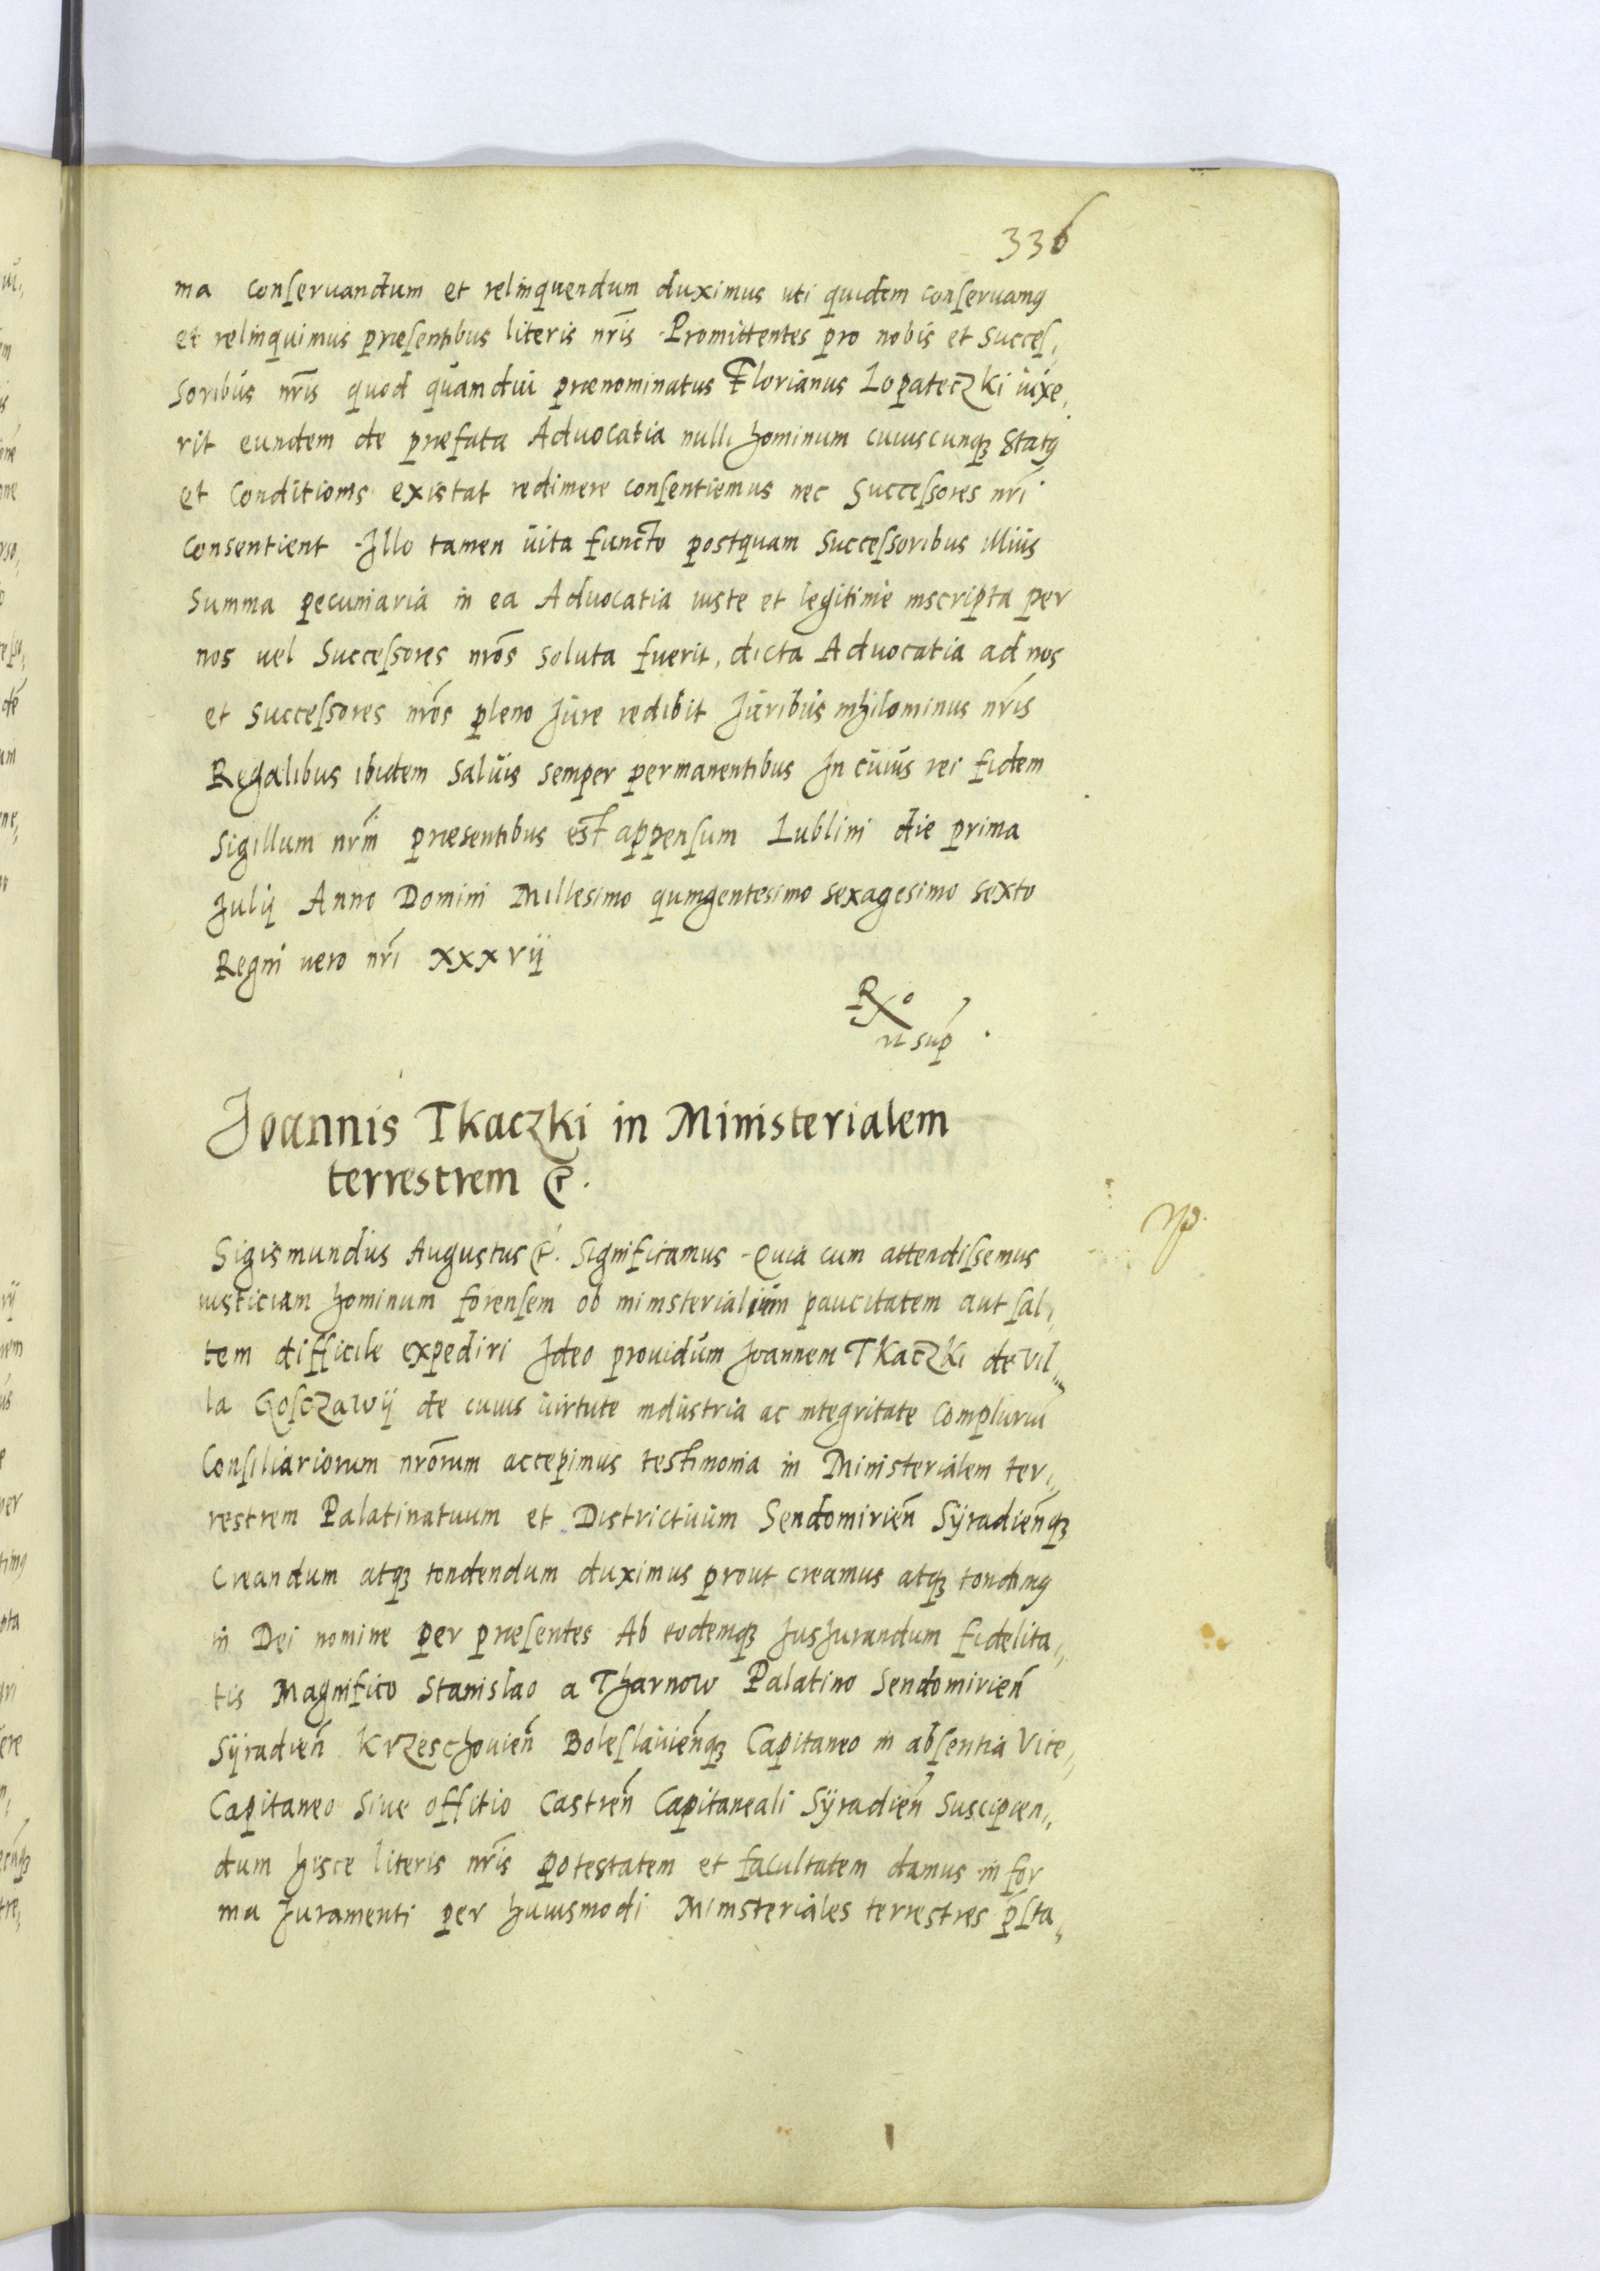 336
ma conſeruandum et relinquendum duximus uti quidem conſeruamꝰ
et relinquimus præſentibus literis nr̃is Promittentes pro nobis et Succeſ,
soribus nr̃is quod quamdiu prænominatus Florianus Lopateczki uixe,
rit eundem de præfata Aduocatia nulli hominum cuiuscunqꝫ Statꝰ
et Conditionis existat redimere conſentiemus nec Succeſsores nr̃i
consentient Illo tamen uita functo postquam Succeſsoribus illius
Summa pecuniaria in ea Aduocatia iuste et legitime inscripta per
nos uel Succeſsores nr̃os soluta fuerit, dicta Aduocatia ad nos
et Succeſsores nr̃os pleno Jure redibit Juribus nihilominus nr̃is
Regalibus ibidem Saluis semper permanentibus In cuius rei fidem
Sigillum nr̃m præsentibus est appenſum Lublini die prima
Julij Anno Domini Millesimo quingentesimo sexagesimo sexto
Regni uero nr̃i xxxvij
Rᵒ
ut sup
Joannis Tkaczki in Ministerialem
terrestrem &.
Sigismundus Augustus &. Significamus Quia cum attendiſsemus
iusticiam hominum forenſem ob ministerialium paucitatem aut ſal,
tem difficile expediri Ideo prouidum Joannem Tkaczki de Vil,
la Goſczawij de cuius uirtute industria ac integritate Compluriũ
Conſiliariorum nr̃orum accepimus testimonia in Ministerialem ter,
restrem Palatinatuum et Districtuum Sendomirieñ Sÿradieñqꝫ
creandum atqꝫ condendum duximus prout creamus atqꝫ condimꝰ
in Dei nomine per præſentes Ab eodemqꝫ JusJurandum fidelita,
tis Magnifico Stanislao a Tharnow Palatino Sendomirieñ
Sÿradieñ Krzeschouieñ Boleſlauieñqꝫ Capitaneo in abſentia Vice,
Capitaneo Siue offitio Castreñ Capitaneali Sÿradieñ Suscipien,
dum hisce literis nr̃is potestatem et facultatem damus in for
ma Juramenti per huiusmodi Ministeriales terrestres p̃ſta,